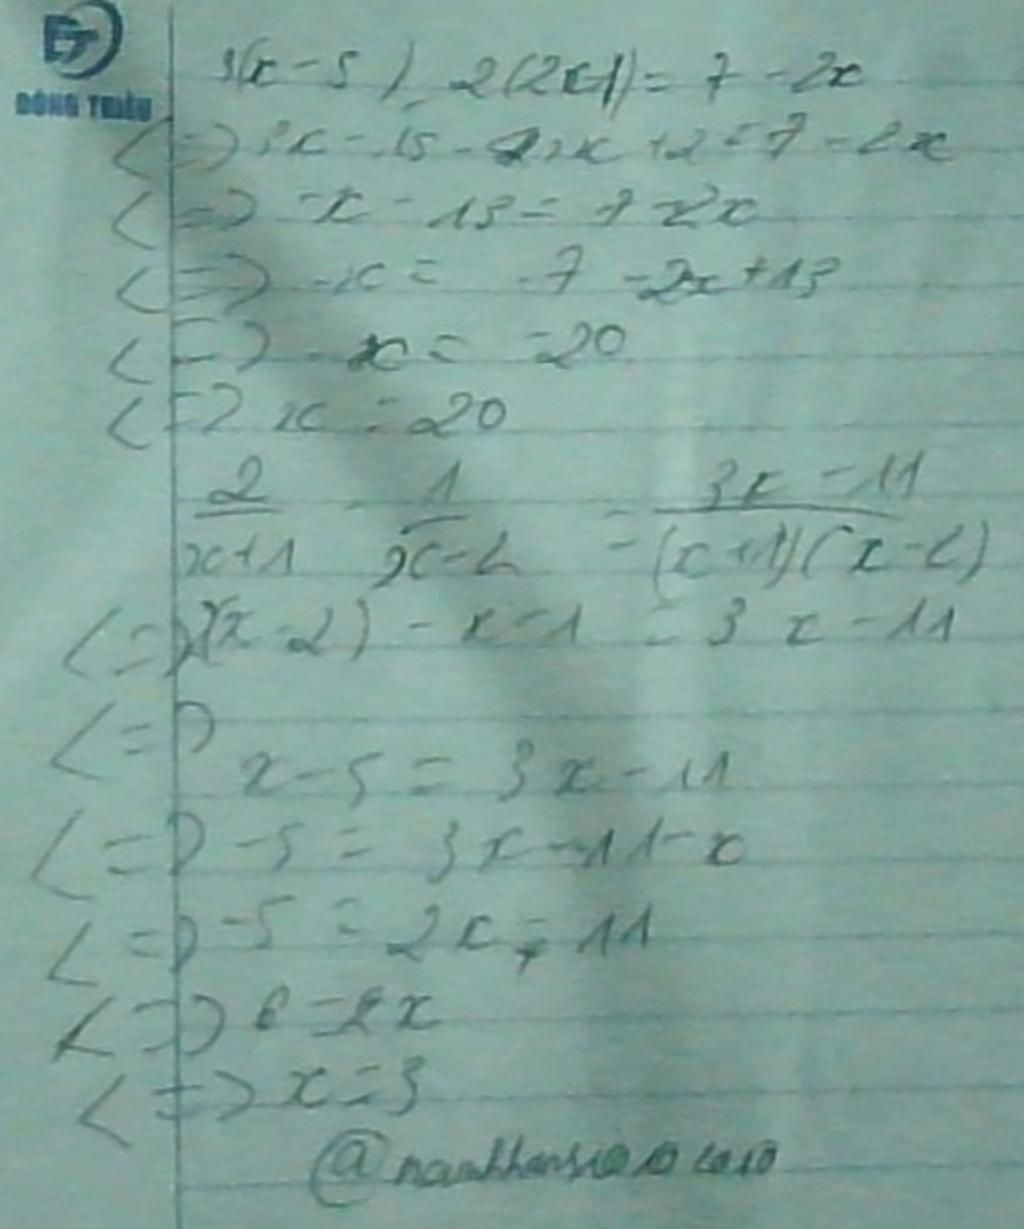 ĐÔNG TRIỀU
3(x - 5) - 2(2x-1) = 7 - 2x
<=> 3x - 15 - 4x + 2 = 7 - 2x
<=> -x - 13 = 7 - 2x
<=> -x = 7 - 2x + 13
<=> x = 20
<=> x = 20
2/(x+1) - 1/(x-2) = (3x - 11)/((x+1)(x-2))
<=> 2(x-2) - x - 1 = 3x - 11
<=>
x - 5 = 3x - 11
<=> -5 = 3x - 11 - x
<=> -5 = 2x - 11
<=> 6 = 2x
<=> x = 3